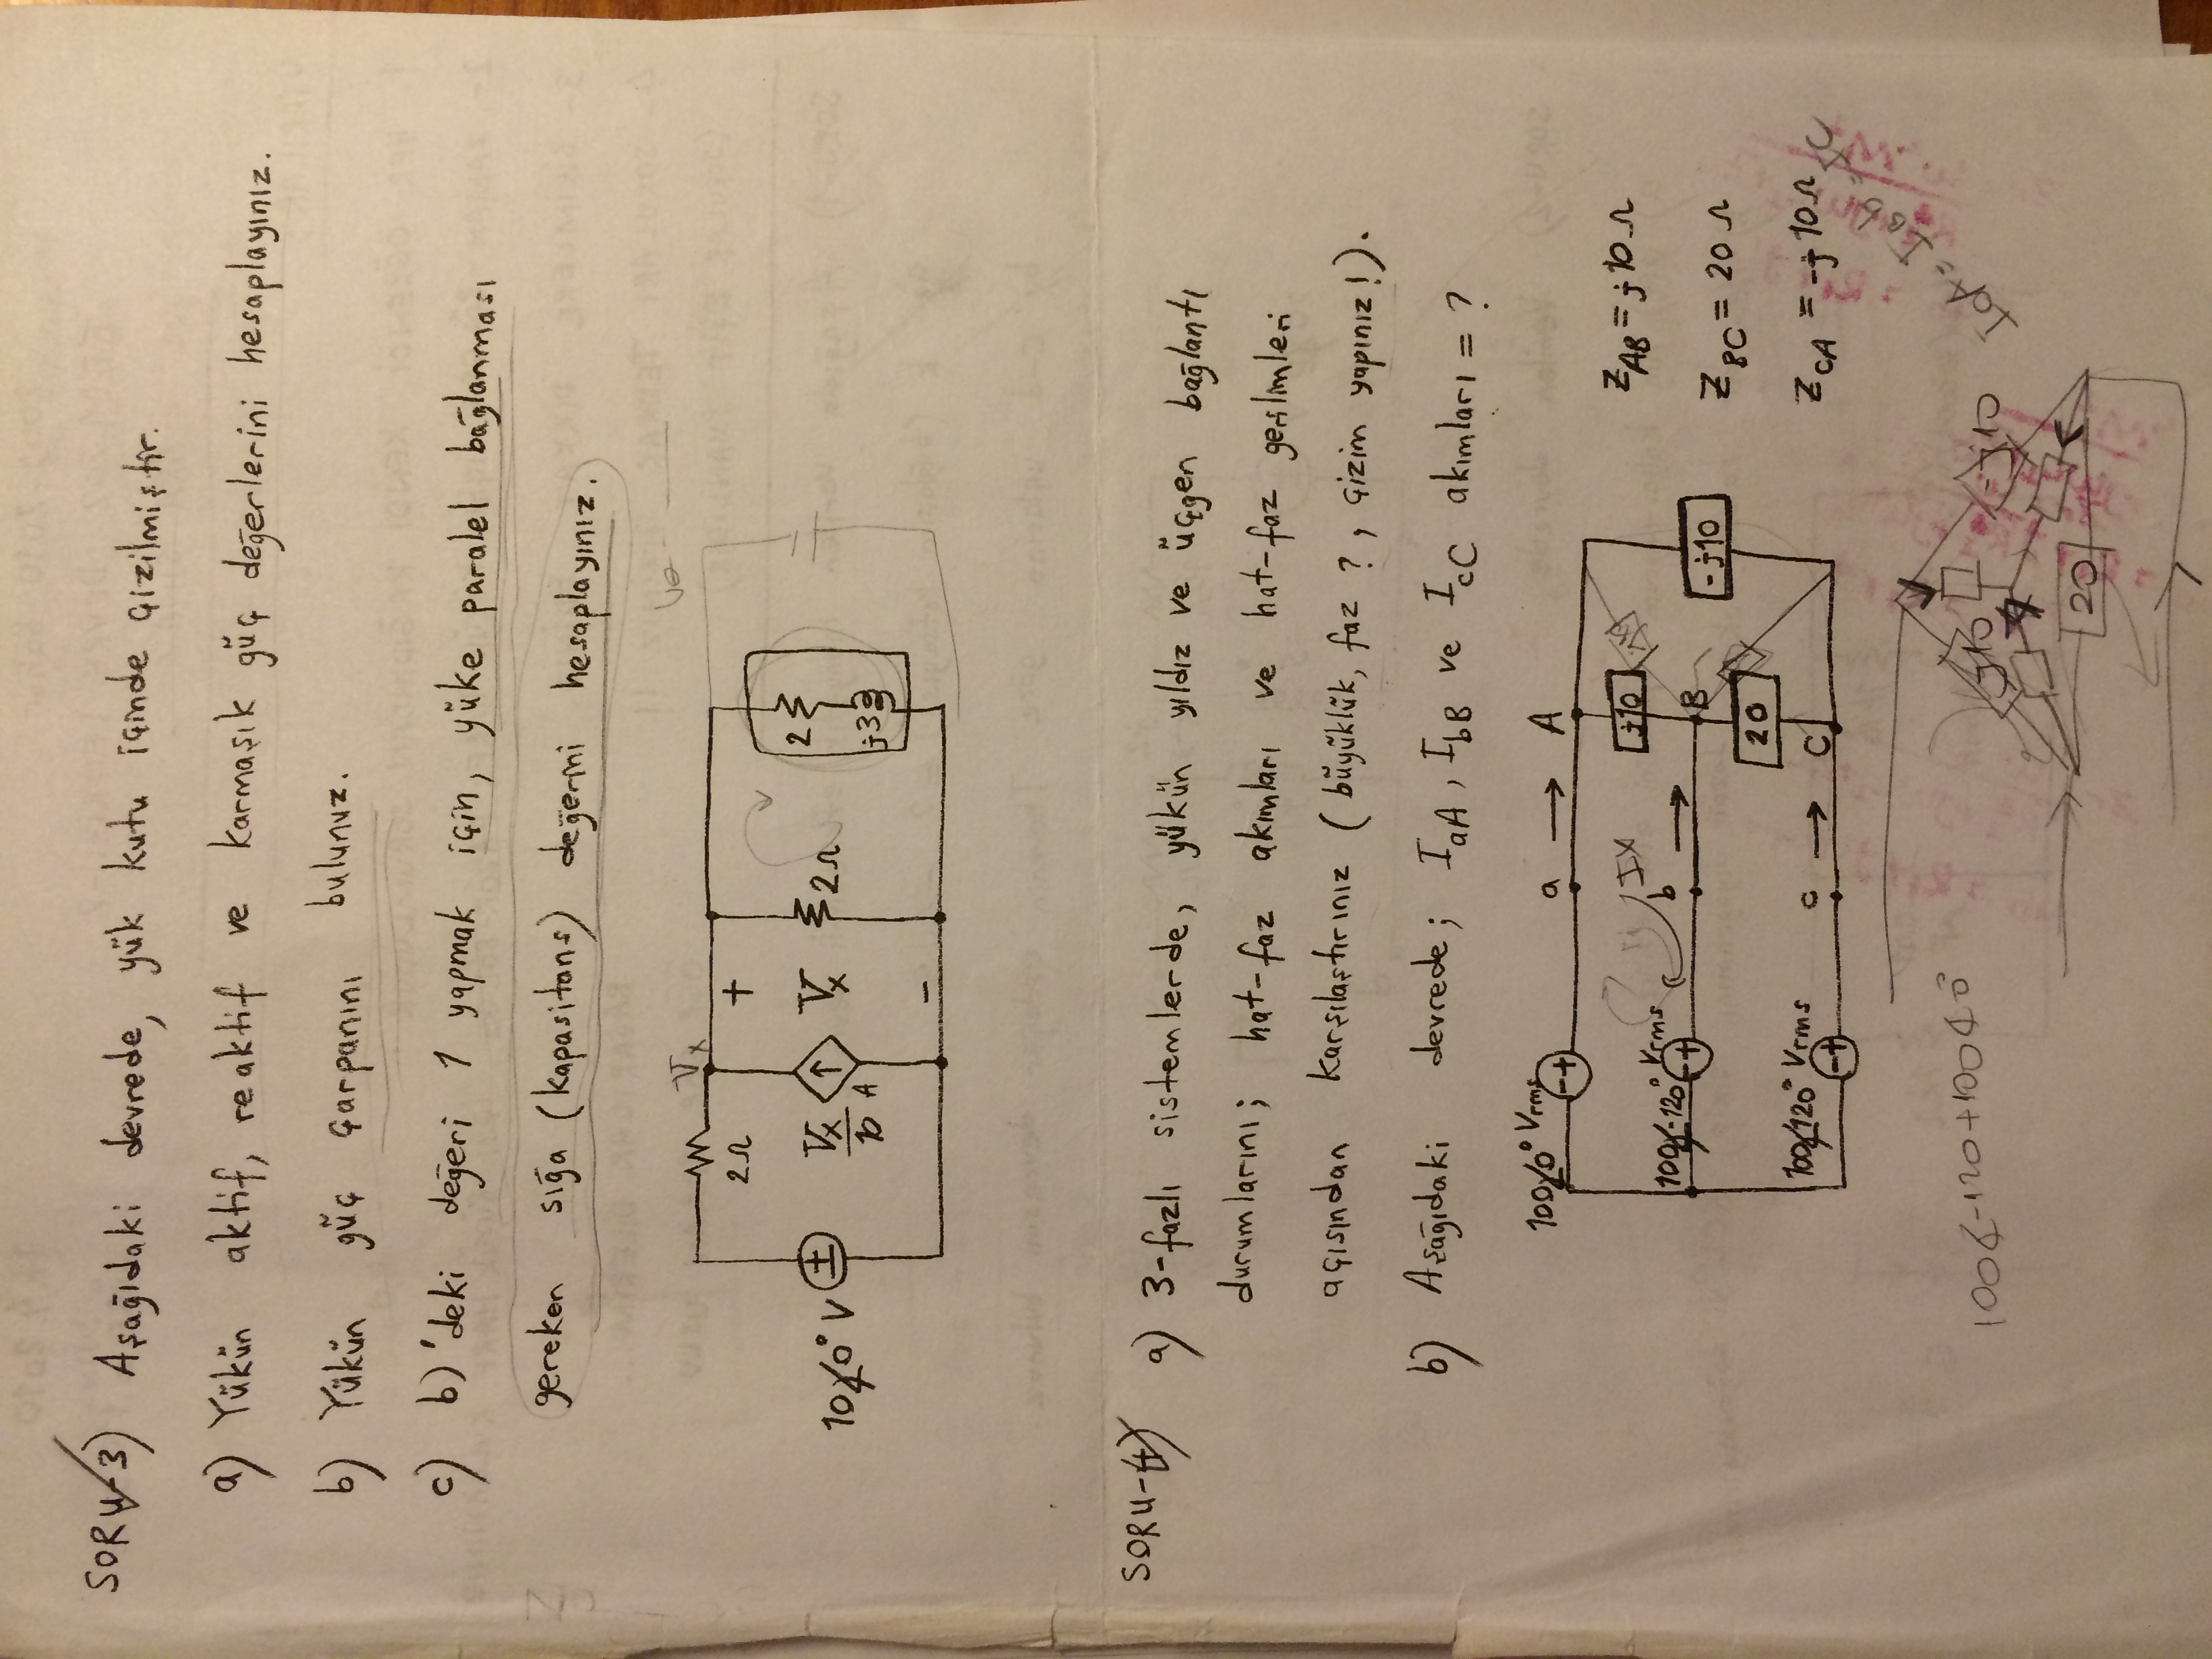 SORU-3) Aşağıdaki devrede, yük kutu içinde çizilmiştir.
a) Yükün aktif, reaktif ve karmaşık güç değerlerini hesaplayınız.
b) Yükün güç çarpanını bulunuz.
c) b)'deki değeri 1 yapmak için, yüke paralel bağlanması
gereken sığa (kapasitans) değerini hesaplayınız.
Vx
2Ω
+
10∠0° V
Vx/10 A
Vx
2Ω
2
j3
-
SORU-4) a) 3-fazlı sistemlerde, yükün yıldız ve üçgen bağlantı
durumlarını; hat-faz akımları ve hat-faz gerilimleri
açısından karşılaştırınız (büyüklük, faz ?, çizim yapınız!).
b) Aşağıdaki devrede; IaA, IbB ve IcC akımları = ?
100∠0° Vrms
a → A
j10
ZAB = j10 Ω
IX
100∠-120° Vrms
b → B
-j10
ZBC = 20 Ω
20
100∠120° Vrms
c → C
ZCA = -j10 Ω
100∠-120+100∠0°
j10
-j10
20